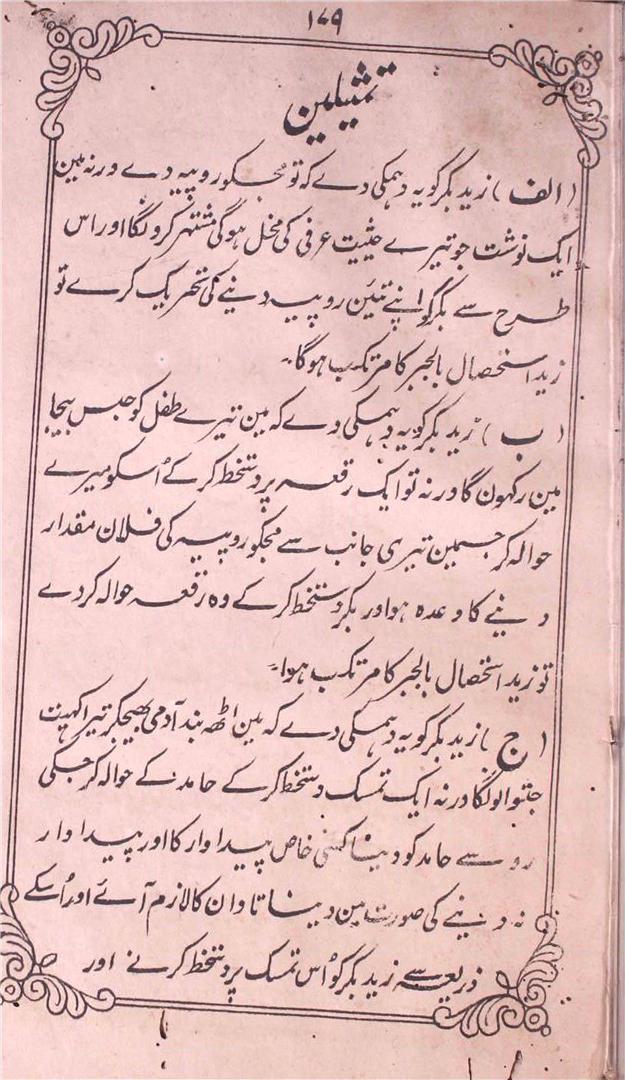 ۱۷۹
تمثیلین
(الف) زید بکر کو یہ دہمکی دے کہ تو مجکو روپیہ دے ورنہ مین
ایک نوشت جو تیرے حیثیت عرفی کی مخل ہوگی مشتہر کرونگا اور اس
طرح سے بکر کو اپنے تئین روپیہ دینے کی تحریک کرے تو
زید استحصال بالجبر کا مرتکب ہوگا۔
(ب) زید بکر کو یہ دہمکی دے کہ مین تیرے طفل کو حبس بیجا
مین رکہون گا ورنہ تو ایک رقعہ پر دستخط کر کے اُسکو میرے
حوالہ کر جسمین تیری جانب سے مجکو روپیہ کی فلان مقدار
دینے کا وعدہ ہو اور بکر دستخط کر کے وہ رقعہ حوالہ کر دے
تو زید استحصال بالجبر کا مرتکب ہوا۔
(ج) زید بکر کو یہ دہمکی دے کہ مین لٹھ بند آدمی بھیجکر تیرا کہیت
جتوا لونگا ورنہ ایک تمسک دستخط کر کے حامد کے حوالہ کر جسکی
رو سے حامد کو دینا کسی خاص پیداوار کا اور پیداوار
نہ دینے کی صورت مین دینا تاوان کا لازم آئے اور اُسکے
ذریعہ سے زید بکر کو اُس تمسک پر دستخط کرنے اور